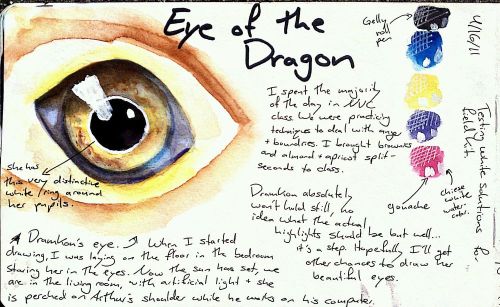 Eye of the
Dragon
Gelly
roll
pen
4/16/11
Testing white solutions for
field kit
I spent the majority
of the day in NVC
class. We were practicing
techniques to deal with anger
+ boundries. I brought brownies
and almond + apricot split-
seconds to class.
Dramkon absolutely
won't hold still, no
idea what the actual
highlights should be but well...
it's a step. Hopefully I'll get
other chances to draw her
beautiful eyes.
gouache
chinese
white
water
color.
she has
this very distinctive
white ring around
her pupils.
Dramkon's eye. When I started
drawing, I was laying on the floor in the bedroom
staring her in the eyes. Now the sun has set, we
are in the living room, with artificial light + she
is perched on Arthur's shoulder while he works on his computer.